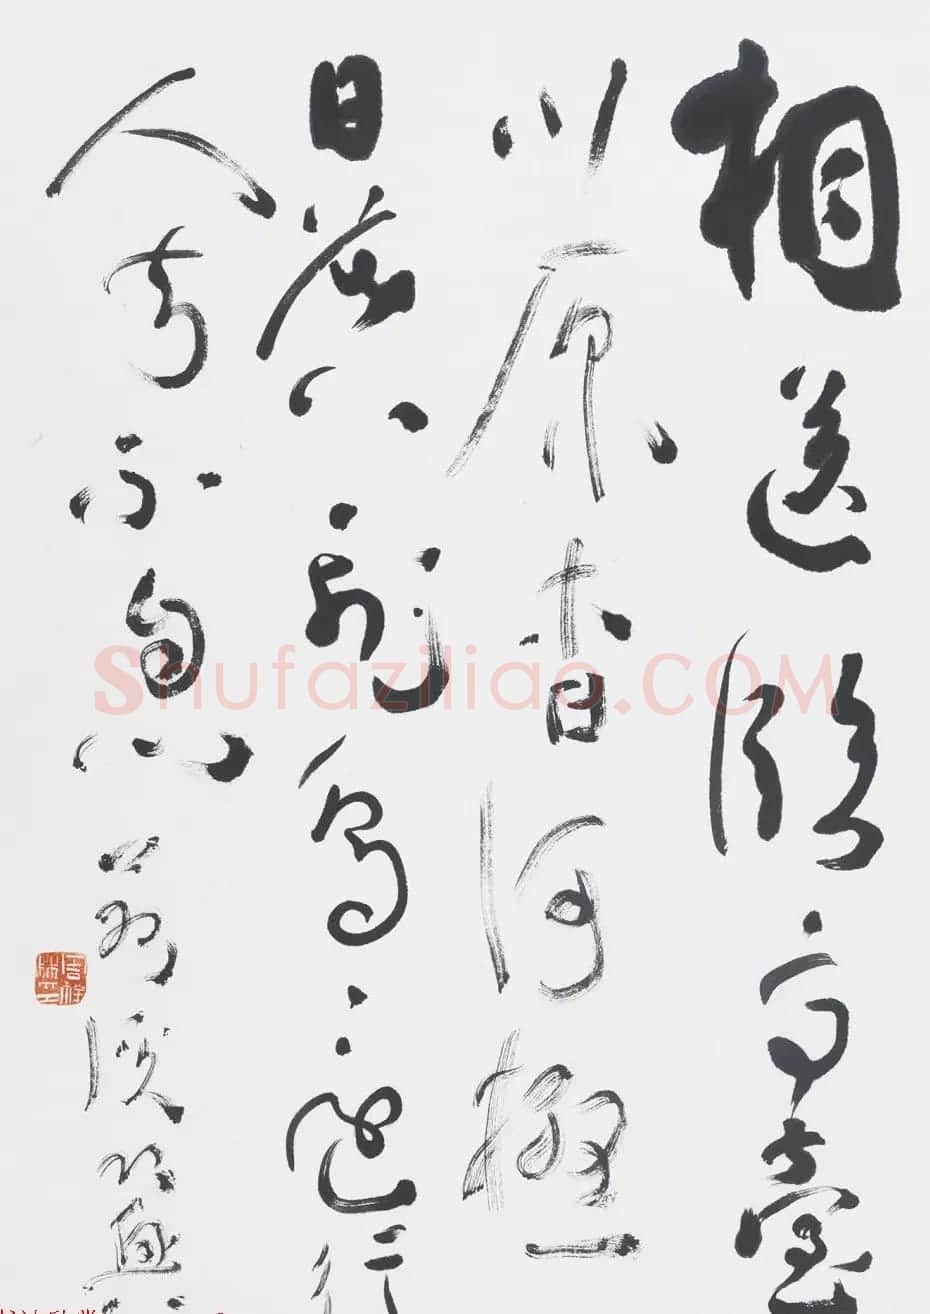 相送臨高臺
川原杳何極
日暮飛鳥還行
人去不息
Shufaziliao.COM